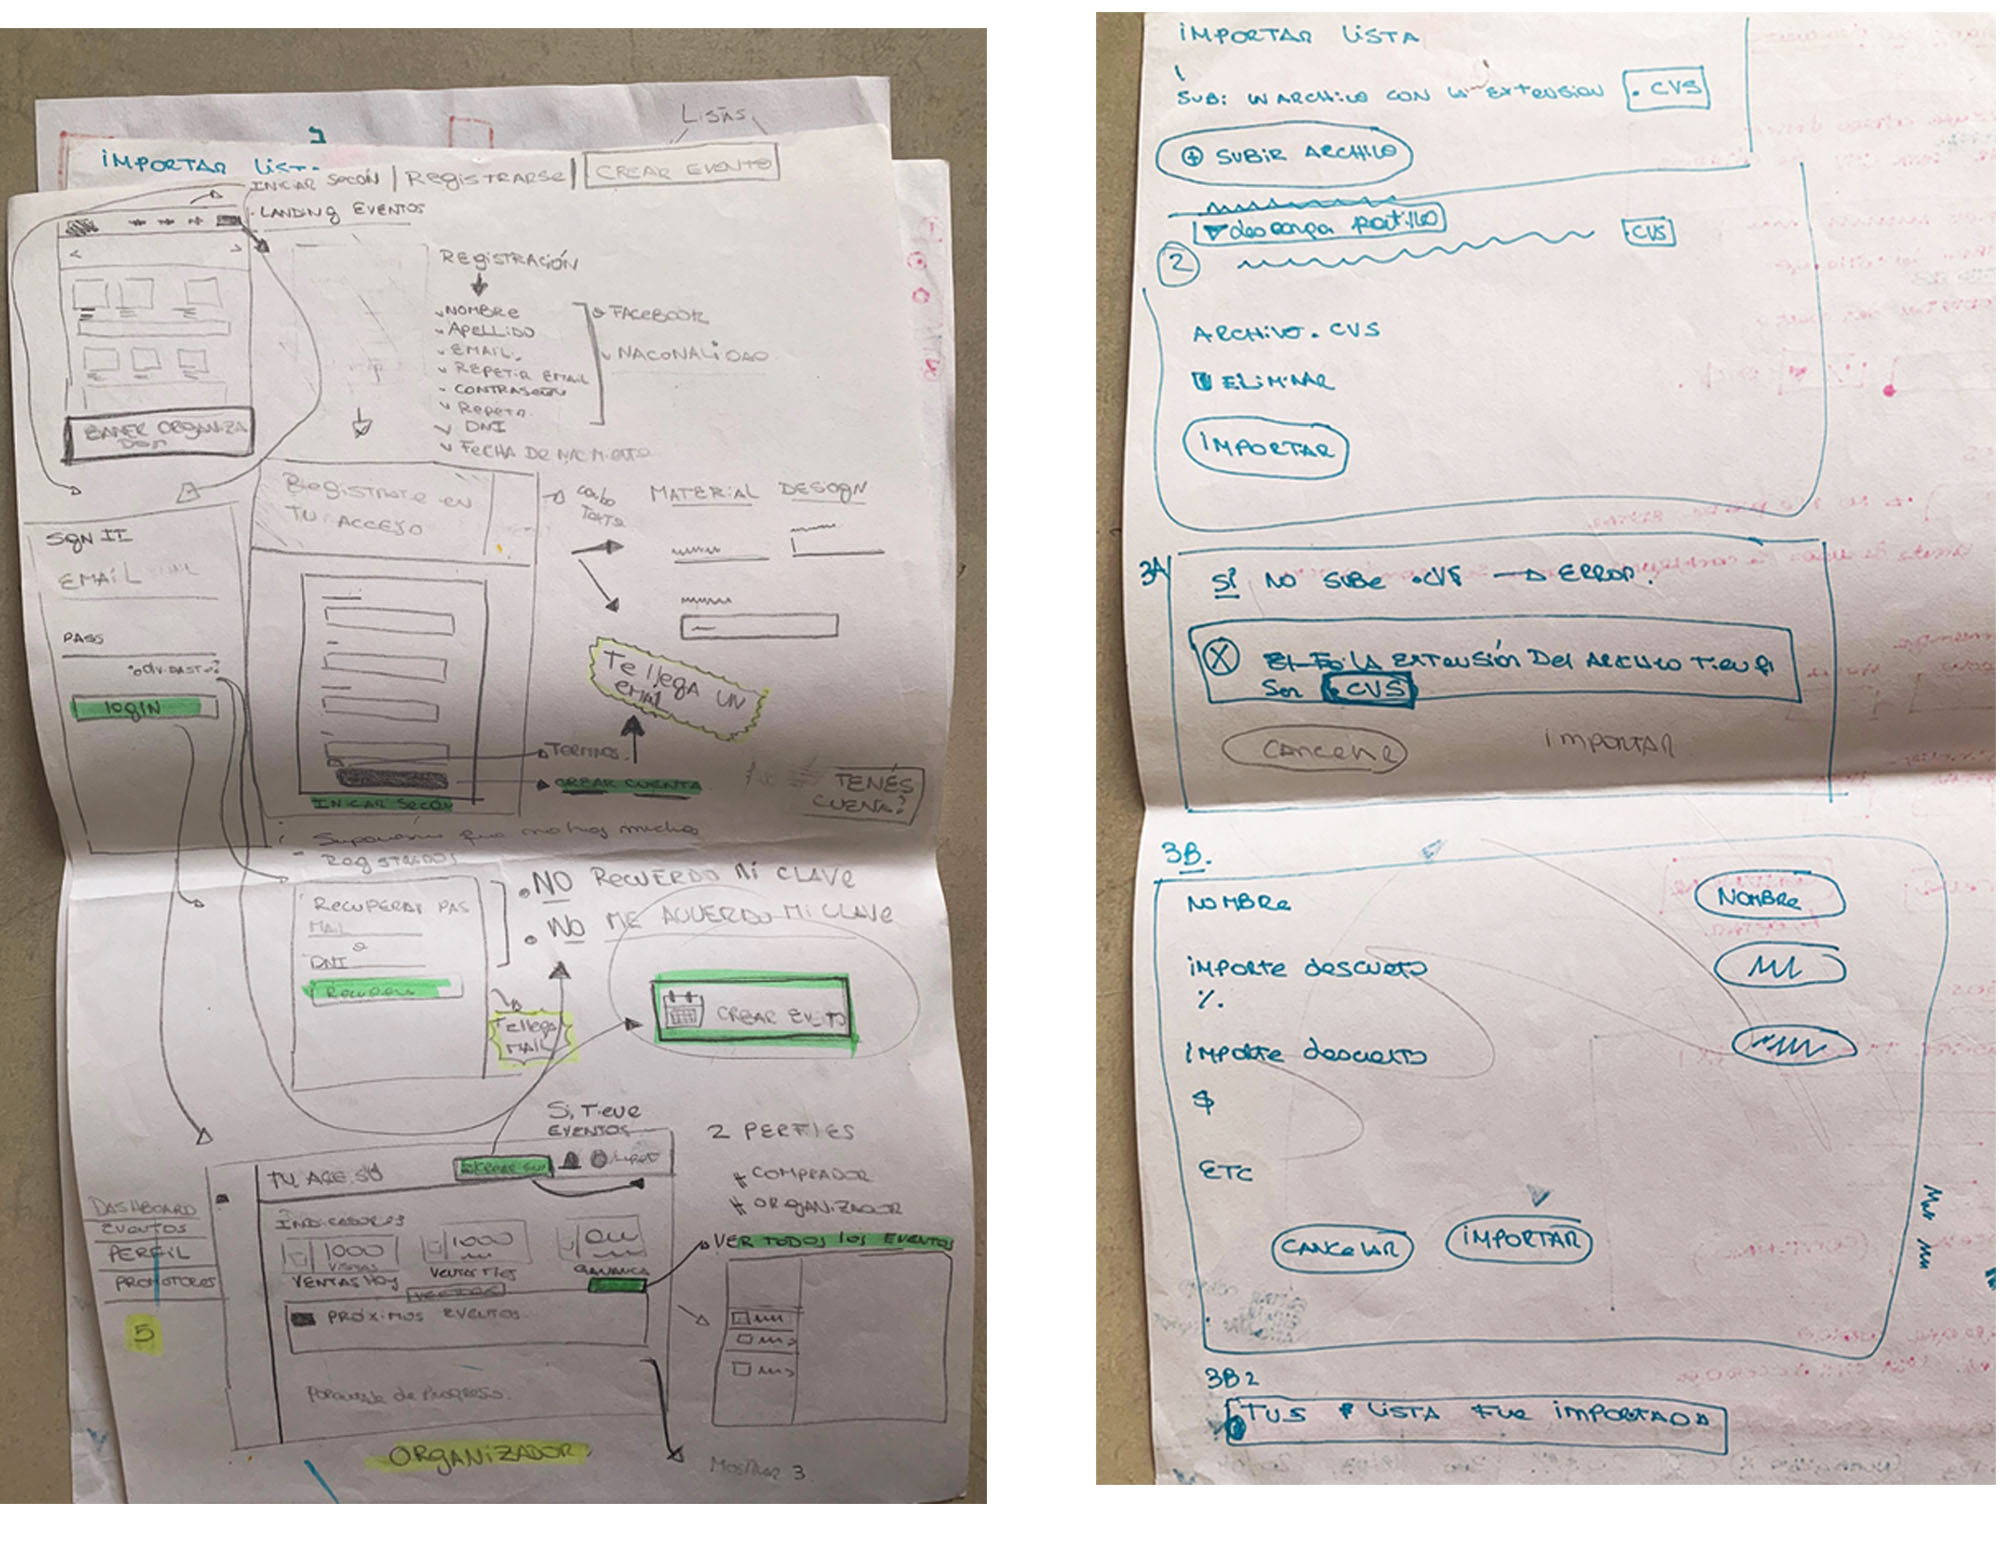 Listas
IMPORTAR LIST
INICIAR SECÓN | REgISTRARSE | CREAR EVENTO
LANDINg EVENTOS
REgISTRACIÓN
NOMBRE
APELLIDO
EMAIL
REPETIR EMAIL
REPETIR
DNI
FECHA DE
FACEBOOK
NACONALIDAD
BANER ORGANIZA
DOR
REgISTRATE EN
TU ACCESO
MATERIAL DESIGN
SIGN II
EMAIL
PASS
LOGIN
Te llega UN
EMAIL
TERMINOS
CREAR CUENTA
INICAR SECÓN
TENÉS
CUENTA?
que no hay muchos
REgISTRADOS
RECUPERAR PAS
MAIL
o
DNI
RECUPERAR
.NO RECUERDO MI CLAVE
.NO ME ACUERDO MI CLAVE
Te llega
MAIL
CREAR EVETO
Si Tiene
EVENTOS
2 PERFIES
# COMPRADOR
# ORGANIZADOR
VER TODOS los EVENTOS
DASHBOARD
EVENTOS
PERFIL
PROMOTORES
5
INDICADORES
1000
VISITAS
1000
VENTAS HOY
VENTAS MES
PRÓXIMOS EVENTOS
de Progreso
ORGANIZADOR
MOSTRAR 3
IMPORTAR LISTA
SUBI UN ARCHIVO CON LA EXTENSION .CVS
+ SUBIR ARCHIVO
descarga
2
.CVS
ARCHIVO.CVS
ELIMINAR
IMPORTAR
3A
SI NO SUBE .CVS → ERROR.
X LA EXTENSIÓN DEL ARCHIVO TIENE
Ser .CVS
CANCELAR
IMPORTAR
3B.
NOMBRE
NOMBRE
IMPORTE descueto
%.
IMPORTE descuesto
$
ETC
CANCELAR
IMPORTAR
3B2
TUS LISTA FUE IMPORTADA